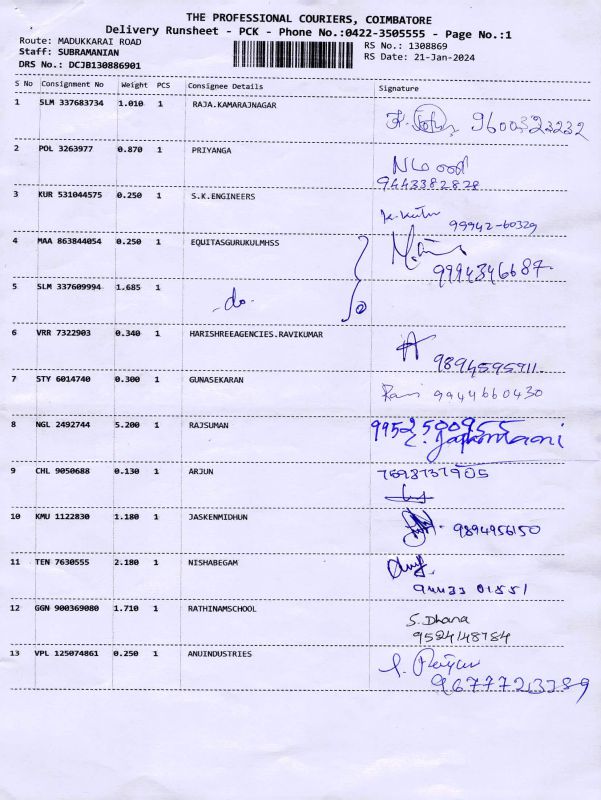 THE PROFESSIONAL COURIERS, COIMBATORE
Delivery Runsheet - PCK - Phone No.:0422-3505555 - Page No.:1
Route: MADUKKARAI ROAD
RS No.: 1308869
Staff: SUBRAMANIAN
RS Date: 21-Jan-2024
DRS No.: DCJB130886901
S No Consignment No Weight PCS Consignee Details Signature
1 SLM 337683734 1.010 1 RAJA.KAMARAJNAGAR
9600323232
2 POL 3263977 0.870 1 PRIYANGA
9443382828
3 KUR 531044575 0.250 1 S.K.ENGINEERS
99942-60329
4 MAA 863844054 0.250 1 EQUITASGURUKULMHSS
9994346687
5 SLM 337609994 1.685 1 -do-
6 VRR 7322903 0.340 1 HARISHREEAGENCIES.RAVIKUMAR
9894595911
7 STY 6014740 0.300 1 GUNASEKARAN
Ravi 9944660430
8 NGL 2492744 5.200 1 RAJSUMAN
9952500955
9 CHL 9050688 0.130 1 ARJUN
10 KMU 1122830 1.180 1 JASKENMIDHUN
9894956150
11 TEN 7630555 2.180 1 NISHABEGAM
94433 01551
12 GGN 900369080 1.710 1 RATHINAMSCHOOL
S. Dhana
9524148784
13 VPL 125074861 0.250 1 ANUINDUSTRIES